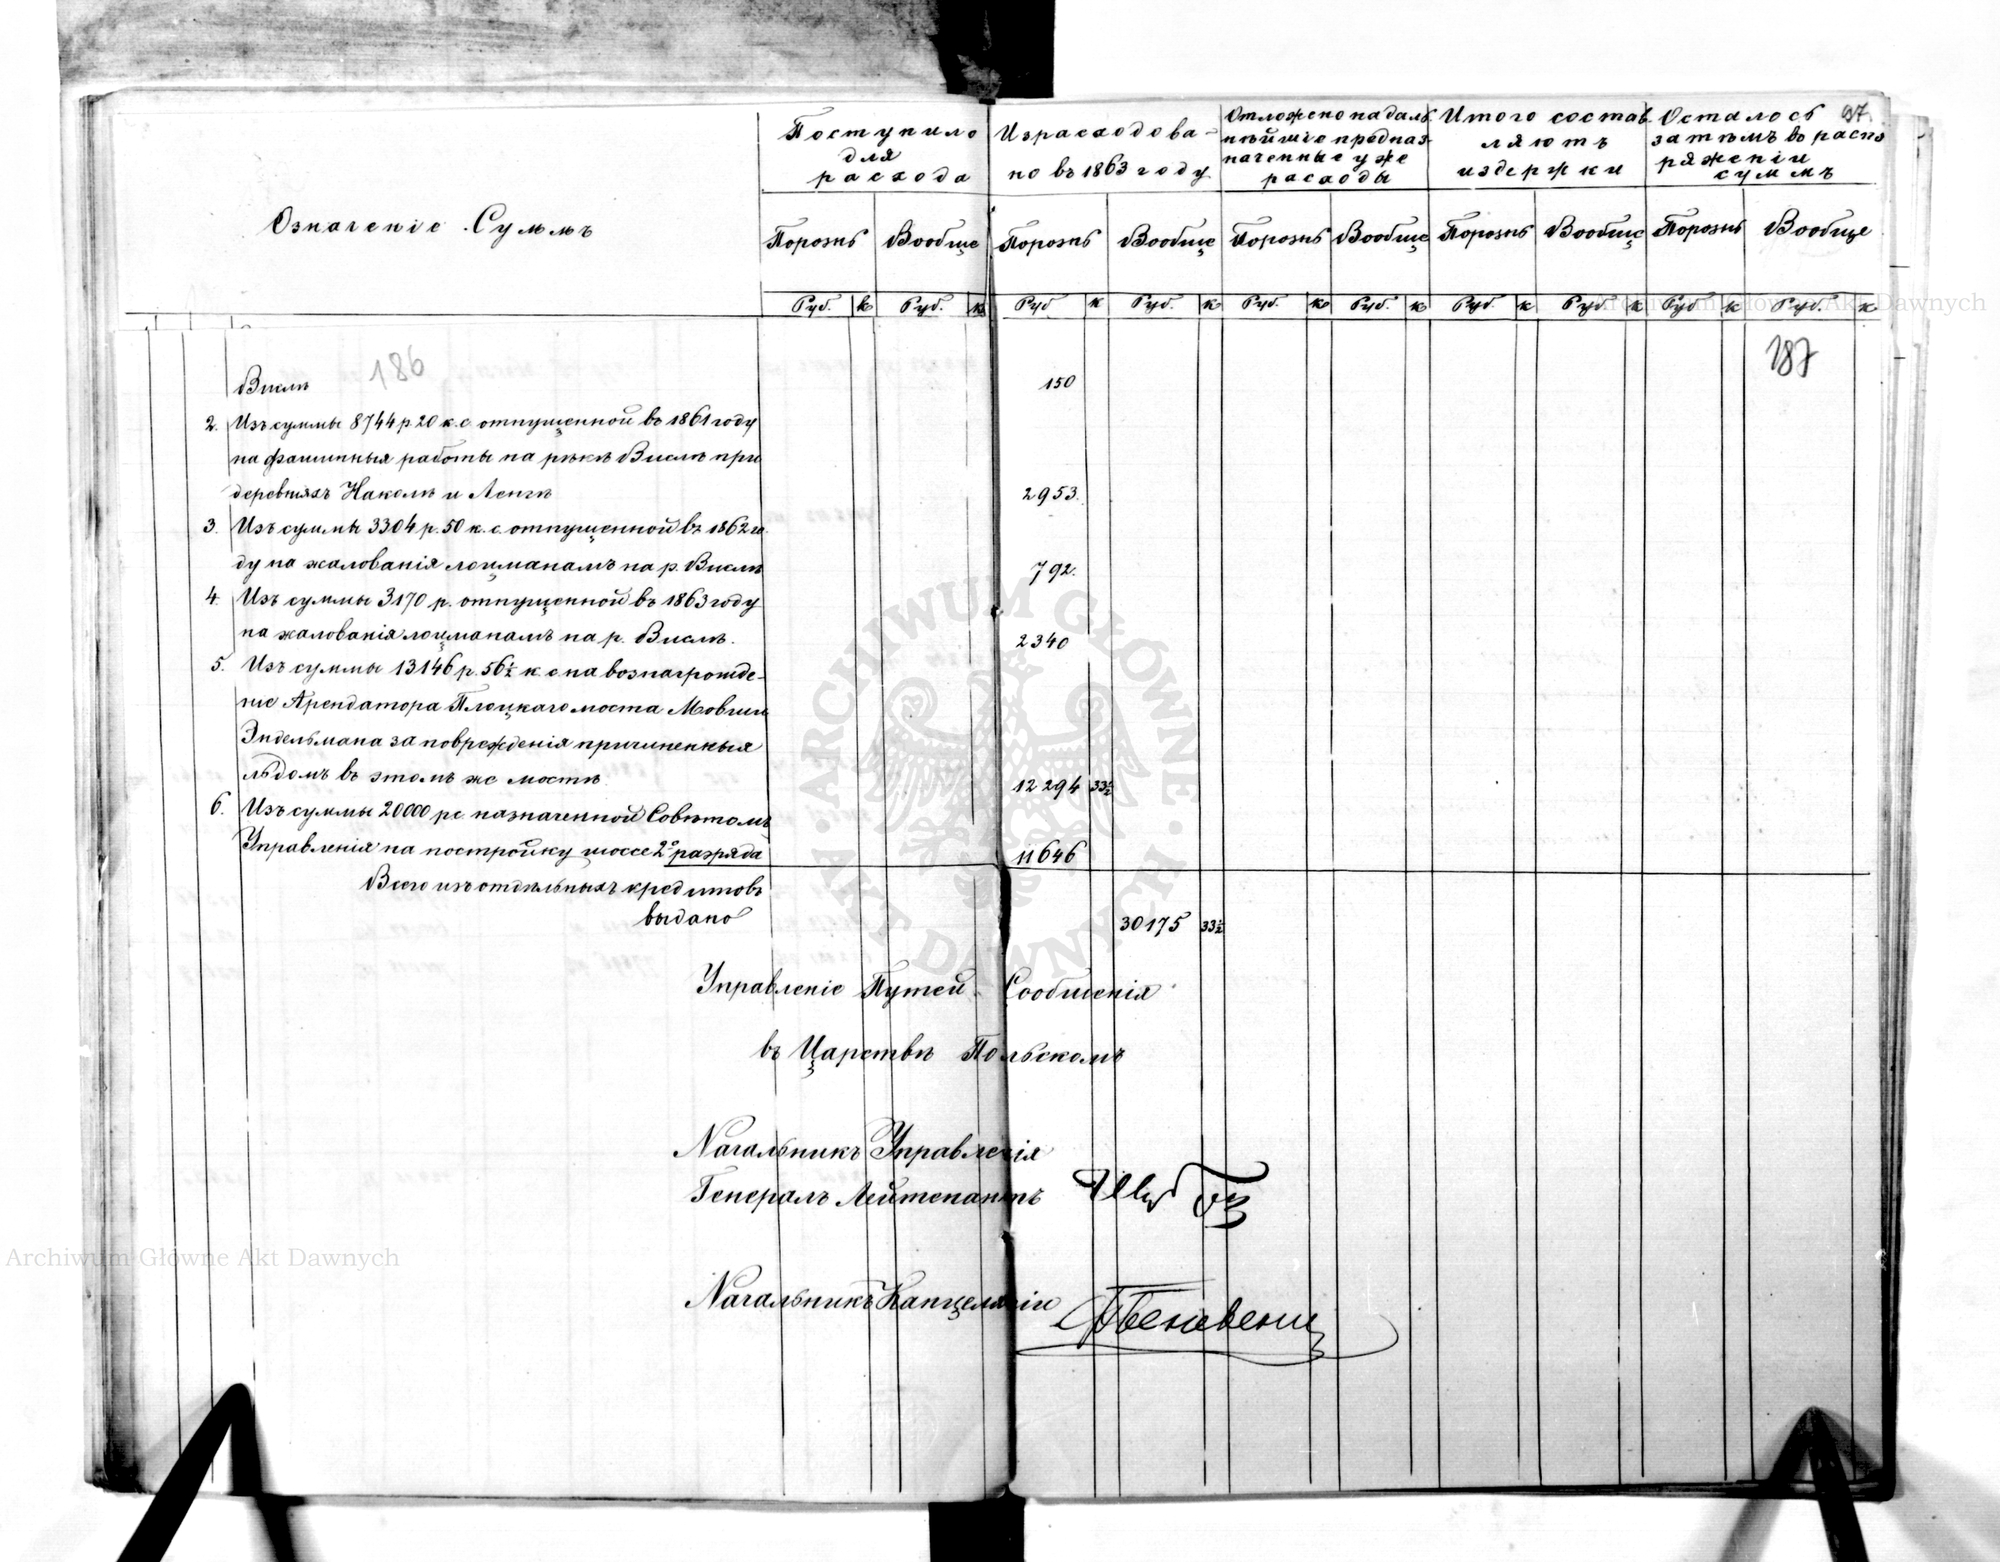 97.
Означеніе Суммъ
Поступило
для
расхода
Израсходова-
но въ 1863 году
Отложено на даль
нѣйшіе предназ-
наченные уже
расходы
Итого состав
ляютъ
издержки
Осталось
затѣмъ въ распо
ряженіи
суммъ
Порознь Вообще Порознь Вообще Порознь Вообще Порознь Вообще Порознь Вообще
Руб. к Руб. к Руб к Руб. к Руб. к Руб. к Руб. к Руб. к Руб к Руб. к
186
187
Вислѣ 150
2. Изъ суммы 8744 р. 20 к. с. отпущенной въ 1861 году
на фашинныя работы на рѣкѣ Вислѣ при
деревняхъ Наколъ и Ленгъ 2953.
3. Изъ суммы 3304 р. 50 к. с. отпущенной въ 1862 го-
ду на жалованія лоцманамъ на р. Вислѣ 792.
4. Изъ суммы 3170 р. отпущенной въ 1863 году
на жалованія лоцманамъ на р. Вислѣ. 2340
5. Изъ суммы 13146 р. 56½ к. с. на вознагражде-
ніе Арендатора Плоцкаго моста Мовши
Эндельмана за поврежденія причиненныя
льдомъ въ этомъ же мостѣ 12294 33½
6. Изъ суммы 20000 рс. назначенной Совѣтомъ
Управленія на постройку шоссе 2º разряда 11646
Всего изъ отдѣльныхъ кредитовъ
выдано 30175 33½
Управленіе Путей Сообщенія
въ Царствѣ Польскомъ
Начальникъ Управленія
Генералъ Лейтенантъ
Начальникъ Канцеляріи
ARCHIWUM GŁÓWNE AKT DAWNYCH
Archiwum Główne Akt Dawnych
Archiwum Główne Akt Dawnych